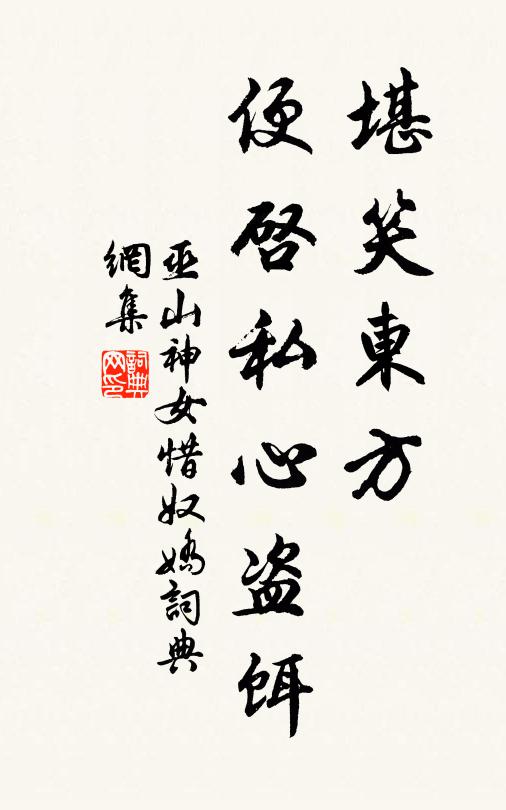 堪笑東方
便啓私心盗餌
巫山神女惜奴嬌詞典
網集
詞典
网印